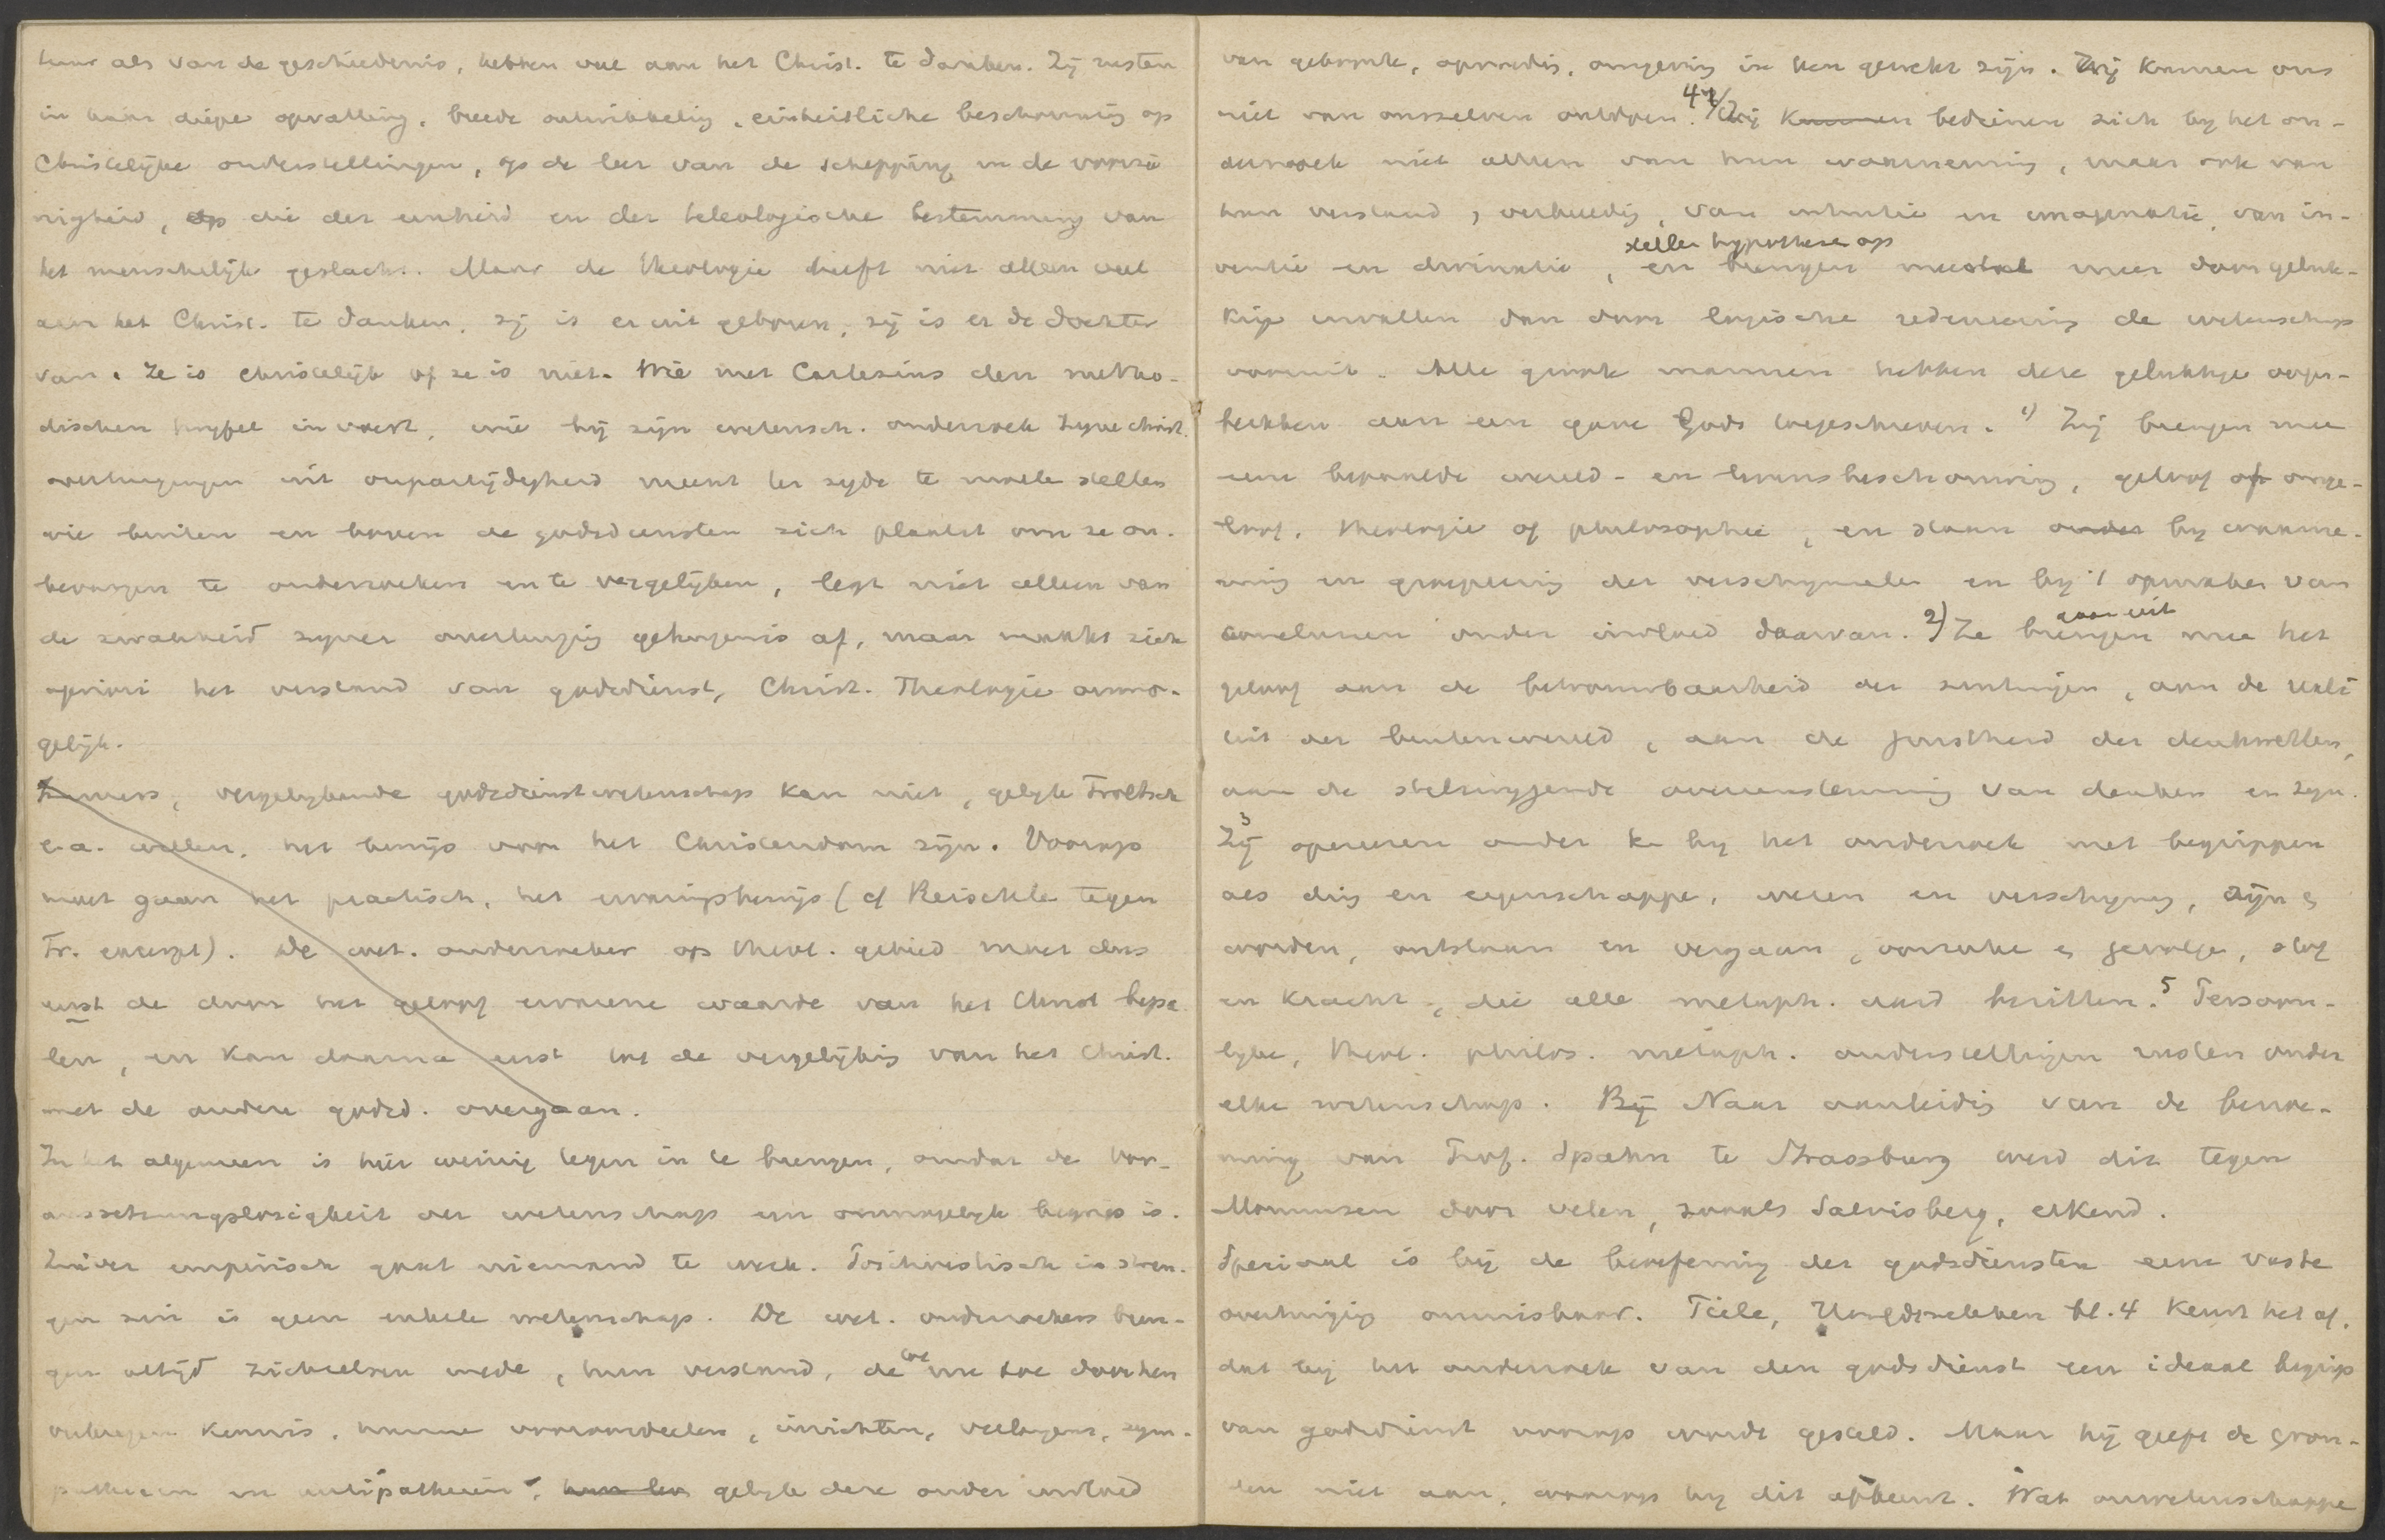 tuur als van de geschiedenis, hebben veel aan het Christ. te danken. Zij rusten
in haar diepe opvatting, breede ontwikkeling, einheitliche beschouwing op
Christelijke onderstellingen, op de leer van de schepping en de voorzie
nigheid, op die der eenheid en der teleologische bestemming van
het menschelijk geslacht. Maar de theologie heeft niet alleen veel
aan het Christ. te danken, zij is er uit geboren, zij is er de dochter
van. Ze is christelijk of ze is niet. Wie met Cartesius den metho-
dischen twyfel invoert, wie bij zijn wetensch. onderzoek zyne christ.
overtuigingen uit onpartijdigheid meent ter zyde te moeten stellen
wie buiten en boven de godsdiensten zich plaatst om ze on-
bevangen te onderzoeken en te vergelijken, legt niet alleen van
de zwakheid zyner overtuiging getuigenis af, maar maakt zich
apriori het verstand van godsdienst, Christ. Theologie onmo-
gelijk.
Immers, vergelykende godsdienstwetenschap kan niet, gelyk Troeltsch
e.a. willen, het bewijs voor het Christendom zijn. Voorop
moet gaan het practisch, het ervaringsbewijs (cf Reischle tegen
Tr. excerpt). De wet. onderzoeker op theol. gebied moet dus
eerst de door het geloof ervarene waarde van het Christ bepa
len, en kan daarna eerst tot de vergelijking van het Christ.
met de andere godsd. overgaan.
In het algemeen is hier weinig tegen in te brengen, omdat de Vor-
aussetzungslosigkeit der wetenschap een onmogelyk begrip is.
Zuiver empirisch gaat niemand te werk. Positivistisch in stren-
gen zin is geen enkele wetenschap. De wet. onderzoekers bren-
gen altijd zichzelven mede, hun verstand, de tot nu toe door hen
verkregen kennis, hunne vooroordeelen, inzichten, verlangens, sym-
pathieën en antipathieën, hun gelyk deze onder invloed
van geboorte, opvoeding, omgeving in hen gewekt zijn. Wij kunnen ons
niet van onszelven ontdoen. 4 Zij kunnen bedienen zich by het on-
derzoek niet alleen van hun waarneming, maar ook van
hun verstand, verbeelding, van intuitie en imaginatie, van in-
stellen hypothese op
ventie en divinatie, en brengen meestal meer door geluk-
kige invallen dan door logische redeneering de wetenschap
vooruit. Alle groote mannen hebben deze gelukkige oogen-
blikken aan een gave Gods toegeschreven. 1) Zij brengen mee
eene bepaalde wereld- en levensbeschouwing, geloof of onge-
loof, theologie of philosophie, en staan onder by waarne-
ming en groepeering der verschijnselen en by 't opmaken van
conclusies onder invloed daarvan. 2) Ze brengen mee het
gaan uit
geloof aan de betrouwbaarheid der zintuigen, aan de reali
teit der buitenwereld, aan de juistheid der denkwetten,
aan de stelselmatige overeenstemming van denken en zyn.
3
Zij opereeren onder by het onderzoek met begrippen
als ding en eigenschappen, wezen en verschyning, zijn en
worden, ontstaan en vergaan, oorzaak en gevolg, stof
en kracht, die alle metaph. aard bezitten. 5 Persoon-
lyke, theol. philos. metaph. onderstellingen rusten onder
elke wetenschap. Bij Naar aanleiding van de benoe-
ming van Prof. Spahn te Strassburg werd dit tegen
Mommsen door velen, zooals Salvisberg, erkend.
Speciaal is bij de beoefening der godsdiensten eene vaste
overtuiging onmisbaar. Tiele, bl. 4 keurt het af,
dat by het onderzoek van den godsdienst een ideaal begrip
van godsdienst voorop worde gesteld. Maar hij geeft de gron-
den niet aan, waarop hy dit afkeurt. Wat onwetenschappe